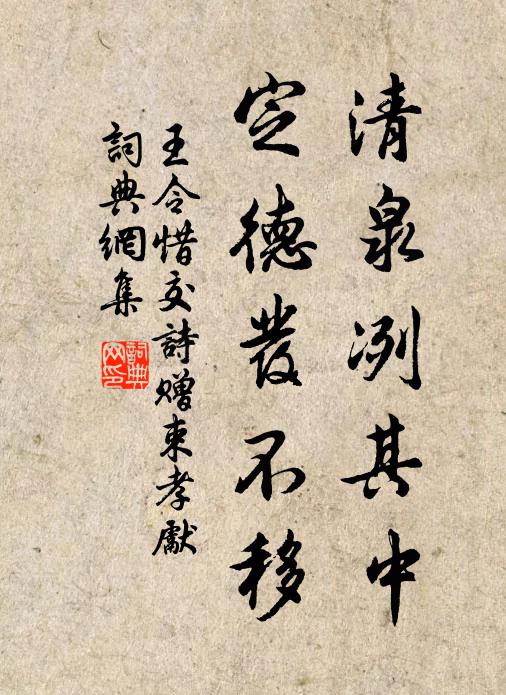 清泉冽其中
定德發不移
王令惜交詩贈束孝獻
詞典網集
詞典網印